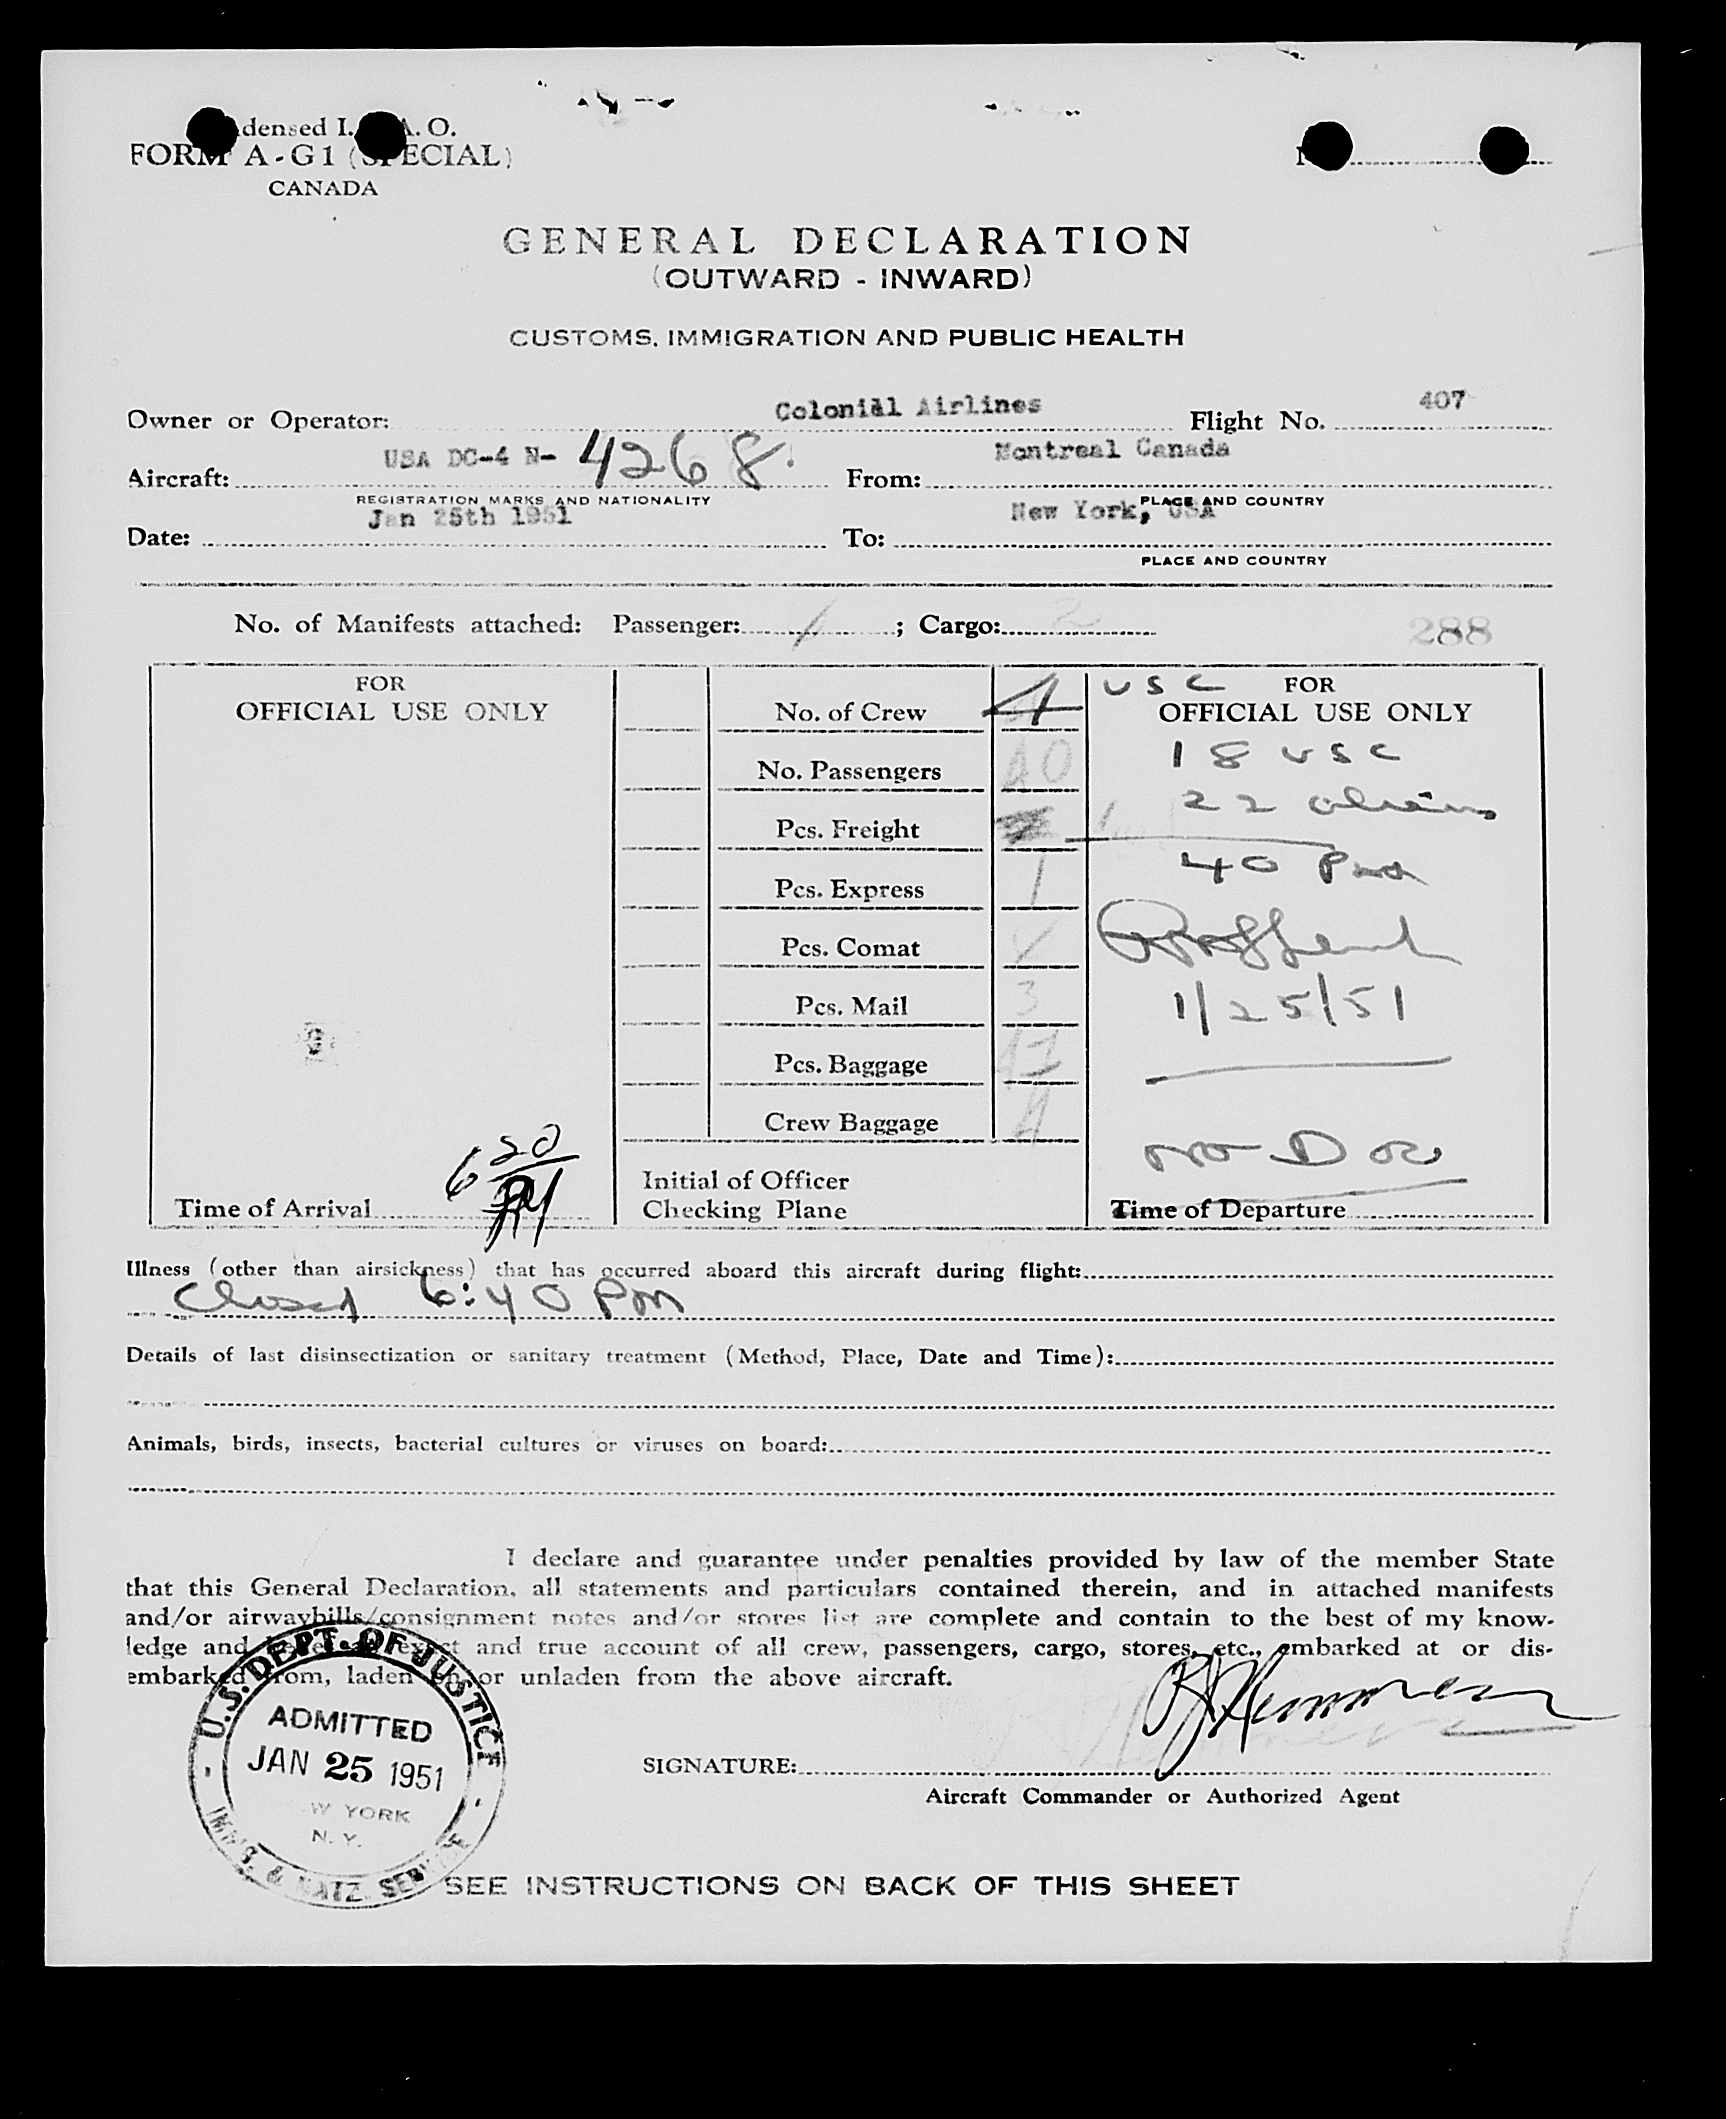 densed I. A. O.
FORM A-G1 (SPECIAL)
CANADA
GENERAL DECLARATION
(OUTWARD - INWARD)
CUSTOMS, IMMIGRATION AND PUBLIC HEALTH
Owner or Operator: Colonial Airlines Flight No. 407
Aircraft: USA DC-4 N- 4268. From: Montreal Canada
REGISTRATION MARKS AND NATIONALITY PLACE AND COUNTRY
Date: Jan 25th 1951 To: New York, USA
PLACE AND COUNTRY
No. of Manifests attached: Passenger: 1 ; Cargo: 2 288
FOR
OFFICIAL USE ONLY
Time of Arrival 6 20 PM
No. of Crew 4
No. Passengers 40
Pcs. Freight
Pcs. Express 1
Pcs. Comat
Pcs. Mail 3
Pcs. Baggage
Crew Baggage 4
Initial of Officer
Checking Plane
USC FOR
OFFICIAL USE ONLY
18 USC
22 aliens
40 Pax
1/25/51
no D
Time of Departure
Illness (other than airsickness) that has occurred aboard this aircraft during flight:
Closed 6:40 PM
Details of last disinsectization or sanitary treatment (Method, Place, Date and Time):
Animals, birds, insects, bacterial cultures or viruses on board:
I declare and guarantee under penalties provided by law of the member State
that this General Declaration, all statements and particulars contained therein, and in attached manifests
and/or airwaybills/consignment notes and/or stores list are complete and contain to the best of my know-
ledge and belief an exact and true account of all crew, passengers, cargo, stores, etc., embarked at or dis-
embarked from, laden on or unladen from the above aircraft.
U.S. DEPT. OF JUSTICE
ADMITTED
JAN 25 1951
W YORK
N. Y.
IMM'G. & NATZ. SERVICE
SIGNATURE:
Aircraft Commander or Authorized Agent
SEE INSTRUCTIONS ON BACK OF THIS SHEET